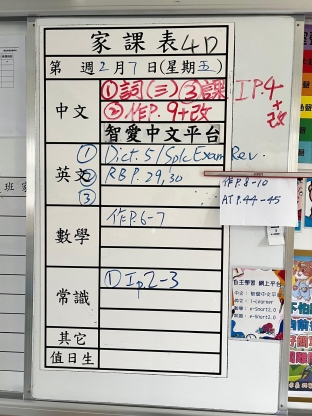 家課表4D
第 週2月7日(星期五)
中文
①詞(三)③課IP.4+改
②作P.9+改
智愛中文平台
英文
① Dict.5/Spk Exam Rev.
② RB P.29,30
③
作P.8-10
AT P.44-45
數學
作P.6-7
常識
① Ip.2-3
其它
值日生
自主學習 網上平台
中文：智愛中文平台